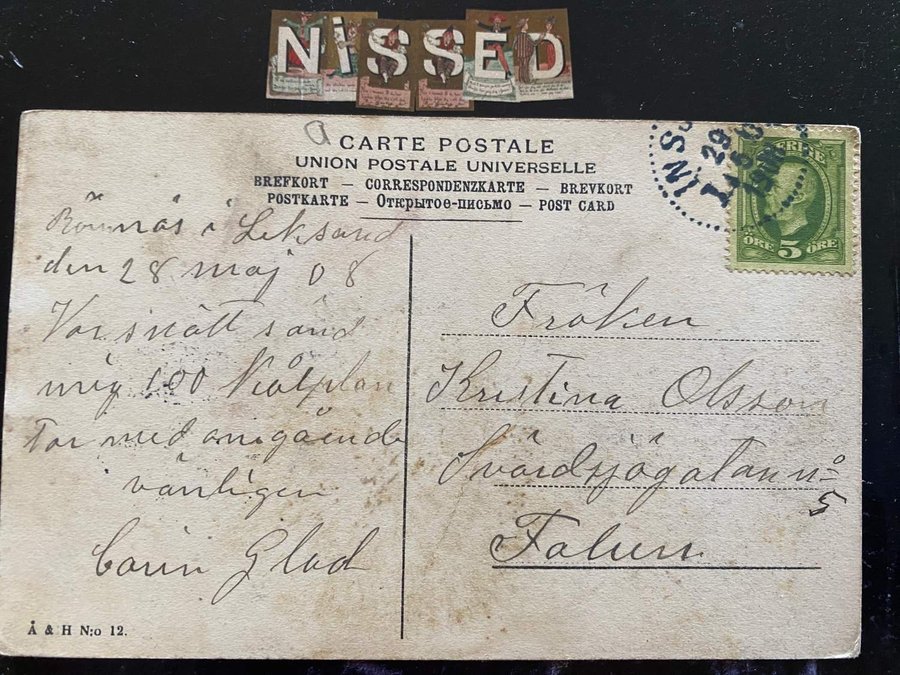 NiSSED
a
CARTE POSTALE
UNION POSTALE UNIVERSELLE
BREFKORT – CORRESPONDENZKARTE – BREVKORT
POSTKARTE – Открытое-письмо – POST CARD
INSJ
29
5
SVERIGE
ÖRE 5 ÖRE
i Leksand
den 28 maj 08
Var snäll sänd
mig 100 Kålplan
tor med omgående
vänligen
Carin Glad
Fröken
Kristina Olsson
Svärdsjögatan nº
5
Falun
Å & H N:o 12.